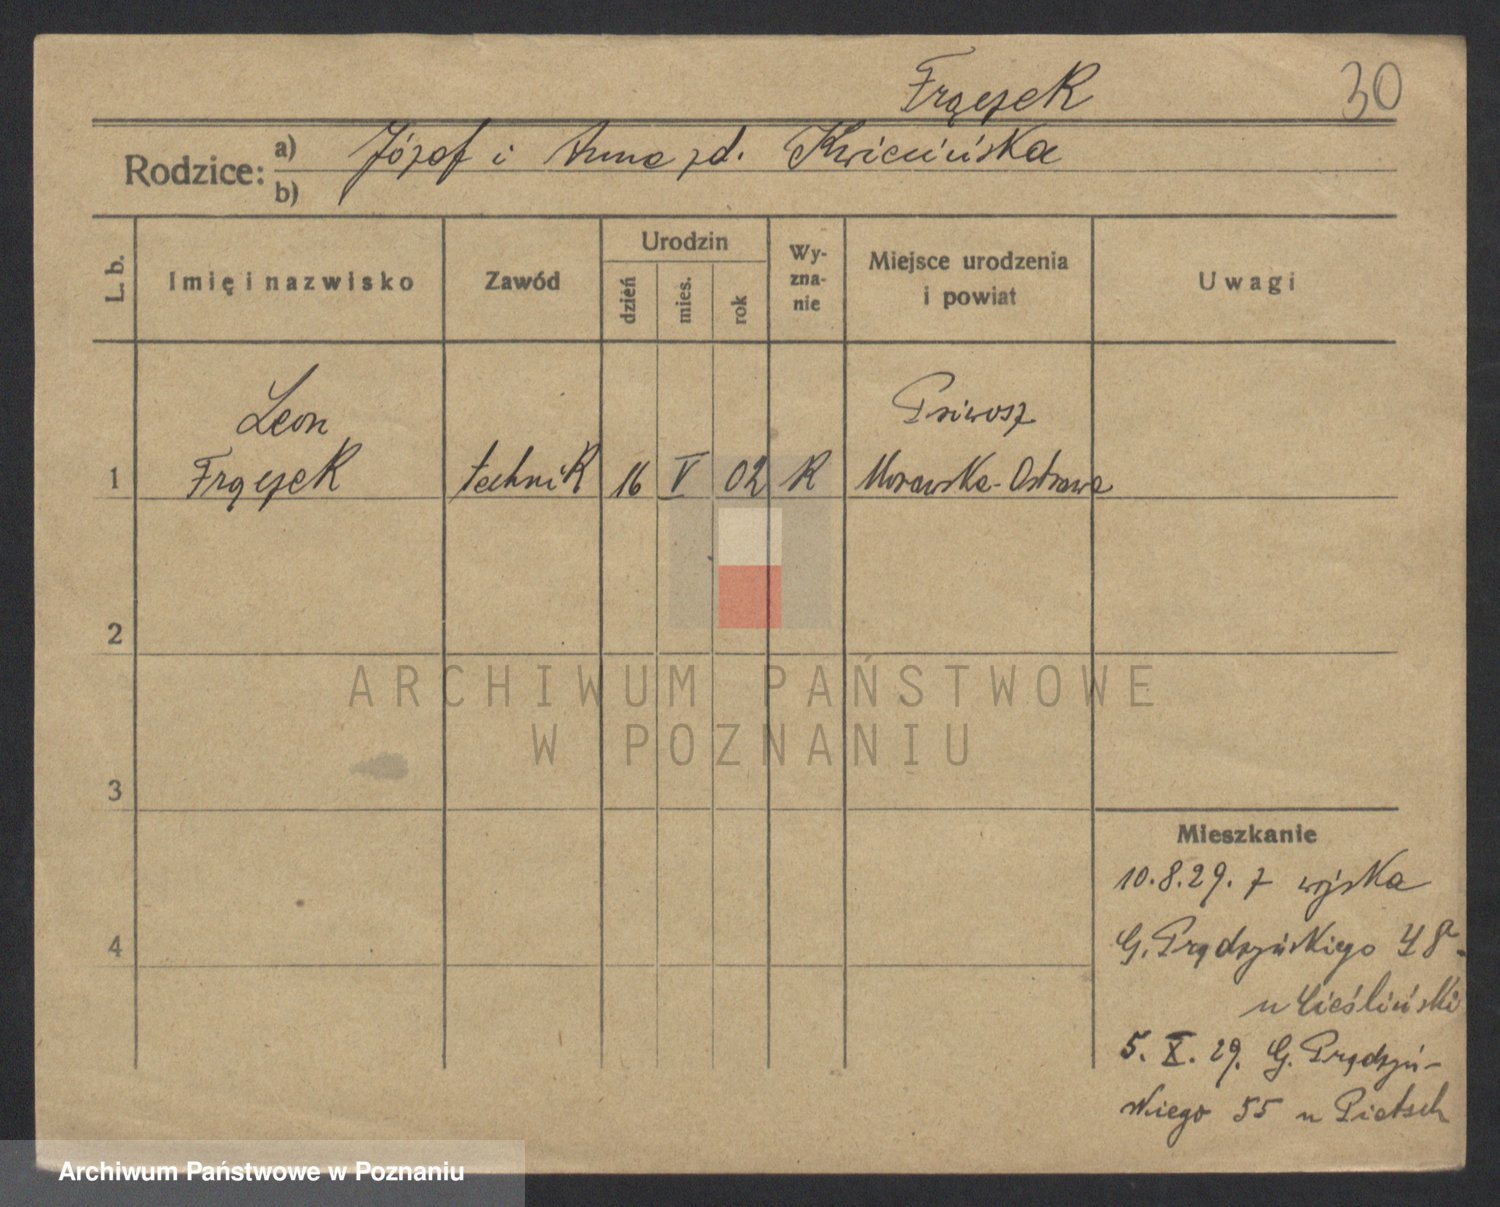 Frączek 30
Rodzice: a) Józef i Anna zd. Kwiecińska
b)
L. b. Imię i nazwisko Zawód Urodzin Wy-zna-nie Miejsce urodzenia i powiat Uwagi
dzień mies. rok
Leon
1 Frączek technik 16 V 02 R Morawska-Ostrawa
2
ARCHIWUM PAŃSTWOWE
W POZNANIU
3
Mieszkanie
10.8.29. z wojska
4 G. Prądzyńskiego 48
u Cieśliński
5. X. 29. G. Prądzyń-
skiego 55 u Pietsch
Archiwum Państwowe w Poznaniu